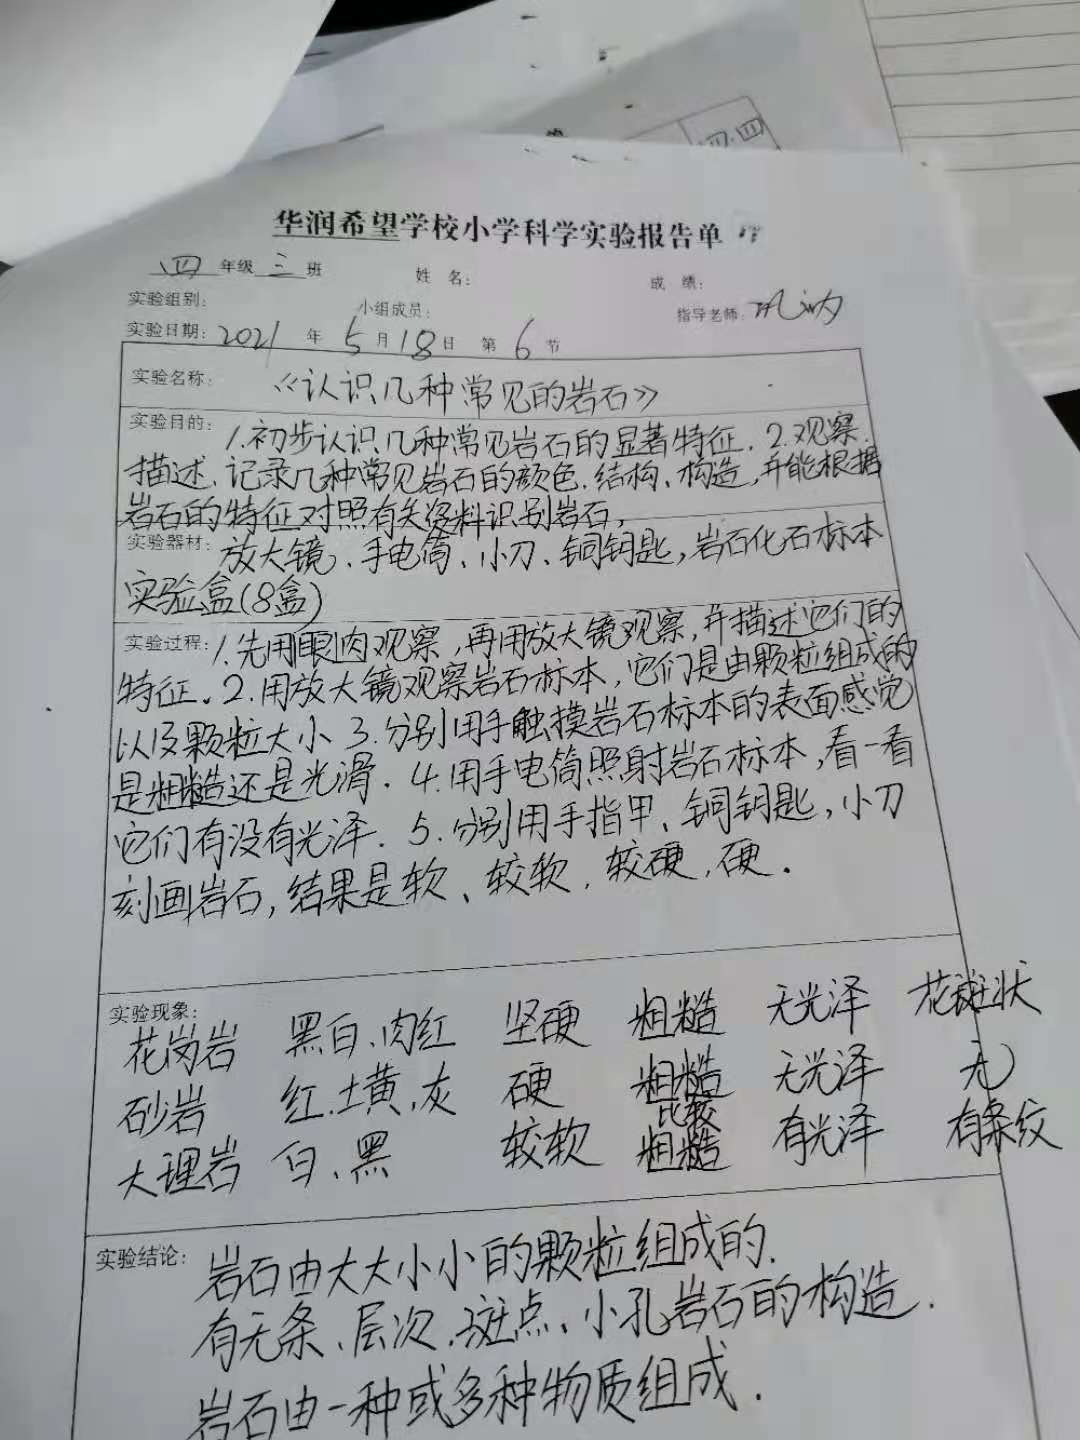 四.四
华润希望学校小学科学实验报告单
四年级三班 姓 名: 成 绩:
实验组别: 小组成员: 指导老师:
实验日期: 2021 年 5 月 18 日 第 6 节
实验名称: 《认识几种常见的岩石》
实验目的: 1.初步认识几种常见岩石的显著特征. 2.观察.
描述、记录几种常见岩石的颜色.结构、构造,并能根据
岩石的特征对照有关资料识别岩石,
实验器材: 放大镜、手电筒、小刀、铜钥匙,岩石化石标本
实验盒(8盒)
实验过程: 1.先用眼肉观察,再用放大镜观察,并描述它们的
特征. 2.用放大镜观察岩石标本,它们是由颗粒组成的
以及颗粒大小 3.分别用手触摸岩石标本的表面感觉
是粗糙还是光滑. 4.用手电筒照射岩石标本,看一看
它们有没有光泽. 5.分别用手指甲、铜钥匙,小刀
刻画岩石,结果是软、较软,较硬,硬.
实验现象:
花岗岩 黑白、肉红 坚硬 粗糙 无光泽 花斑状
砂岩 红.土黄,灰 硬 粗糙 无光泽 无
大理岩 白、黑 较软 比较粗糙 有光泽 有条纹
实验结论: 岩石由大大小小的颗粒组成的.
有无条、层次.斑点、小孔岩石的构造.
岩石由一种或多种物质组成.